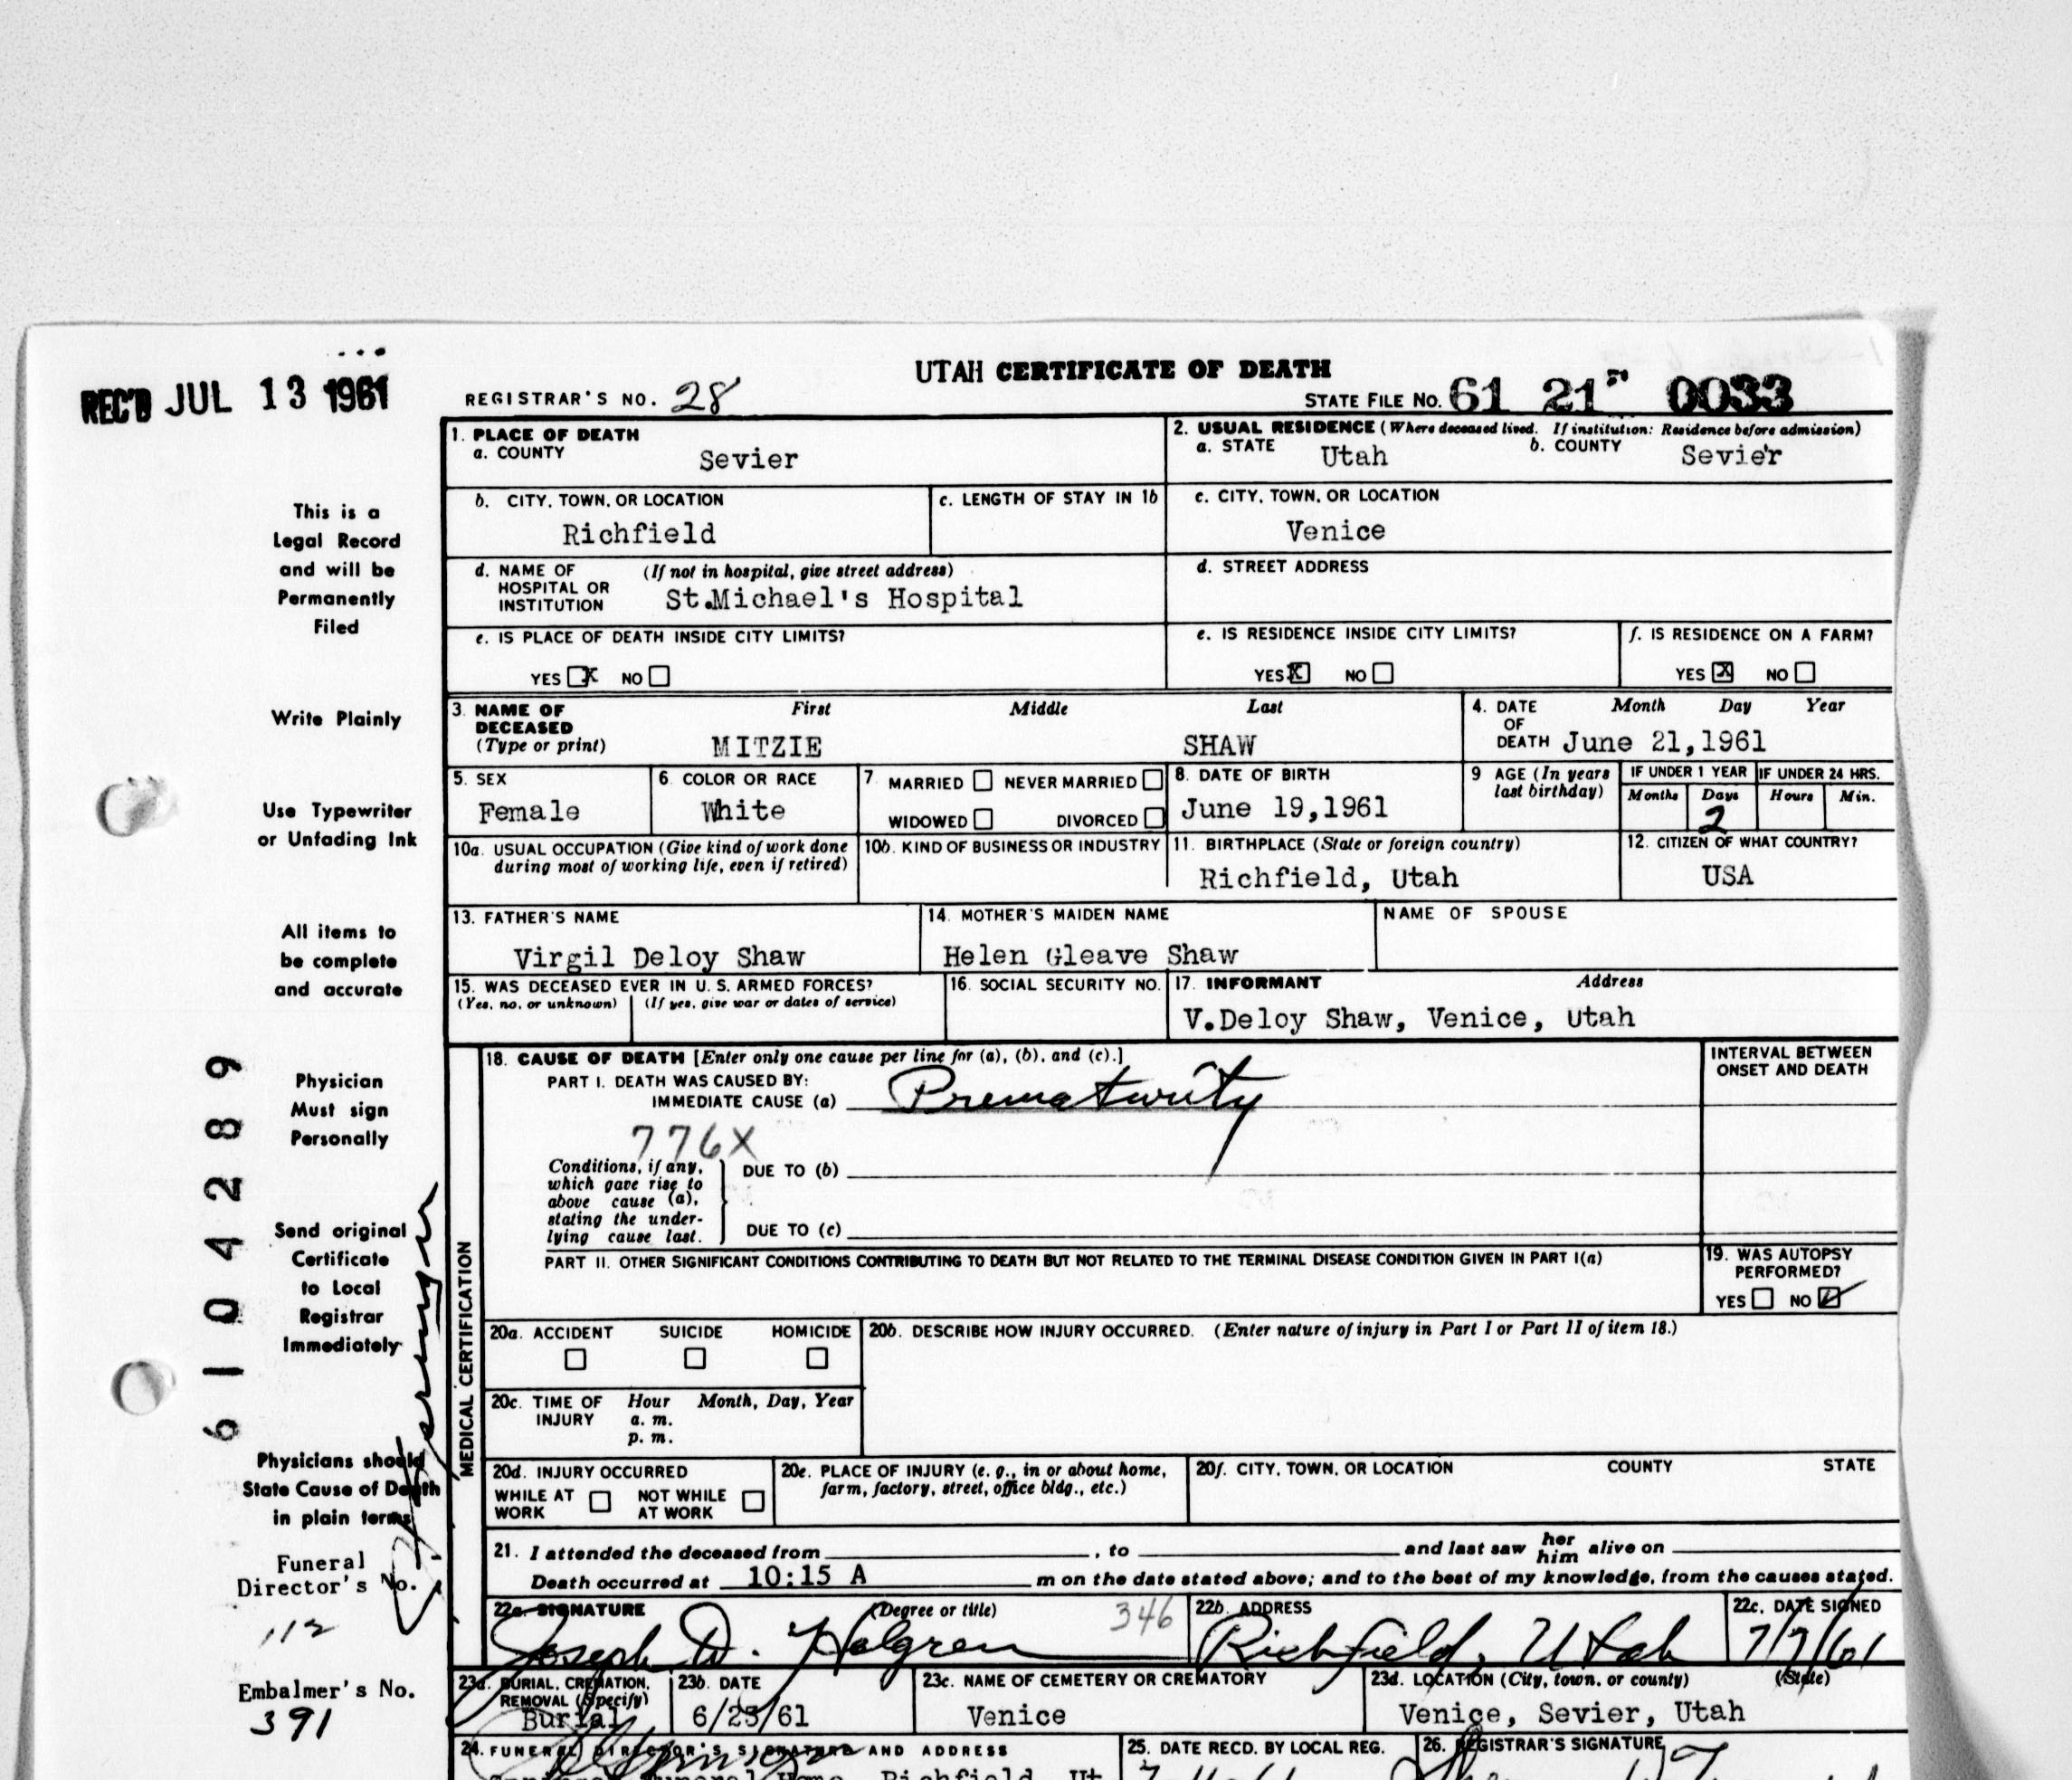 REC'D JUL 13 1961
UTAH CERTIFICATE OF DEATH
REGISTRAR'S NO. 28
STATE FILE NO. 61 21 0033
This is a
Legal Record
and will be
Permanently
Filed
Write Plainly
Use Typewriter
or Unfading Ink
All items to
be complete
and accurate
Physician
Must sign
Personally
Send original
Certificate
to Local
Registrar
Immediately
Physicians should
State Cause of Death
in plain terms
Funeral
Director's No.
112
Embalmer's No.
391
6104289
1. PLACE OF DEATH
a. COUNTY Sevier
2. USUAL RESIDENCE (Where deceased lived. If institution: Residence before admission)
a. STATE Utah b. COUNTY Sevier
b. CITY, TOWN, OR LOCATION
Richfield
c. LENGTH OF STAY IN 1b
c. CITY, TOWN, OR LOCATION
Venice
d. NAME OF (If not in hospital, give street address)
HOSPITAL OR
INSTITUTION St.Michael's Hospital
d. STREET ADDRESS
e. IS PLACE OF DEATH INSIDE CITY LIMITS?
YES X NO
e. IS RESIDENCE INSIDE CITY LIMITS?
YES X NO
f. IS RESIDENCE ON A FARM?
YES X NO
3. NAME OF DECEASED (Type or print)
First Middle Last
MITZIE SHAW
4. DATE OF DEATH
Month Day Year
June 21,1961
5. SEX
Female
6. COLOR OR RACE
White
7. MARRIED NEVER MARRIED
WIDOWED DIVORCED
8. DATE OF BIRTH
June 19,1961
9 AGE (In years
last birthday)
IF UNDER 1 YEAR IF UNDER 24 HRS.
Months Days Hours Min.
2
10a. USUAL OCCUPATION (Give kind of work done
during most of working life, even if retired)
10b. KIND OF BUSINESS OR INDUSTRY
11. BIRTHPLACE (State or foreign country)
Richfield, Utah
12. CITIZEN OF WHAT COUNTRY?
USA
13. FATHER'S NAME
Virgil Deloy Shaw
14. MOTHER'S MAIDEN NAME
Helen Gleave Shaw
NAME OF SPOUSE
15. WAS DECEASED EVER IN U. S. ARMED FORCES?
(Yes, no, or unknown) (If yes, give war or dates of service)
16. SOCIAL SECURITY NO.
17. INFORMANT Address
V.Deloy Shaw, Venice, Utah
MEDICAL CERTIFICATION
18. CAUSE OF DEATH [Enter only one cause per line for (a), (b), and (c).]
PART I. DEATH WAS CAUSED BY:
IMMEDIATE CAUSE (a) Prematurity
776X
INTERVAL BETWEEN
ONSET AND DEATH
Conditions, if any,
which gave rise to
above cause (a),
stating the under-
lying cause last.
DUE TO (b)
DUE TO (c)
PART II. OTHER SIGNIFICANT CONDITIONS CONTRIBUTING TO DEATH BUT NOT RELATED TO THE TERMINAL DISEASE CONDITION GIVEN IN PART I(a)
19. WAS AUTOPSY
PERFORMED?
YES NO ✓
20a. ACCIDENT SUICIDE HOMICIDE
20b. DESCRIBE HOW INJURY OCCURRED. (Enter nature of injury in Part I or Part II of item 18.)
20c. TIME OF INJURY
Hour Month, Day, Year
a. m.
p. m.
20d. INJURY OCCURRED
WHILE AT WORK NOT WHILE AT WORK
20e. PLACE OF INJURY (e. g., in or about home,
farm, factory, street, office bldg., etc.)
20f. CITY, TOWN, OR LOCATION COUNTY STATE
21. I attended the deceased from , to and last saw her him alive on
Death occurred at 10:15 A m on the date stated above; and to the best of my knowledge, from the causes stated.
22a. SIGNATURE (Degree or title)
Joseph D. Halgren 346
22b. ADDRESS
Richfield, Utah
22c. DATE SIGNED
7/7/61
23a. BURIAL, CREMATION,
REMOVAL (Specify)
Burial
23b. DATE
6/23/61
23c. NAME OF CEMETERY OR CREMATORY
Venice
23d. LOCATION (City, town, or county) (State)
Venice, Sevier, Utah
24. FUNERAL DIRECTOR'S SIGNATURE AND ADDRESS
Funeral Home, Richfield, Ut
25. DATE RECD. BY LOCAL REG.
26. REGISTRAR'S SIGNATURE